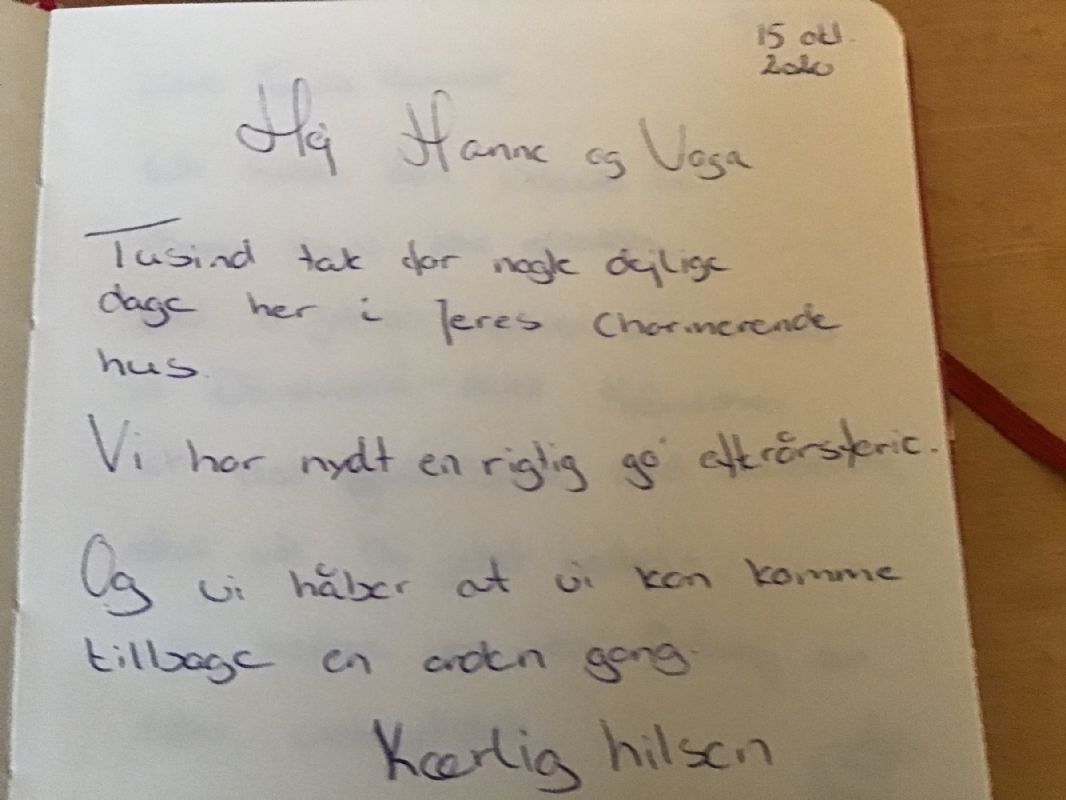 15 okt.
2020
Hej Hanne og Voga
Tusind tak for nogle dejlige
dage her i Jeres charmerende
hus.
Vi har nydt en rigtig go' efterårsferie.
Og vi håber at vi kan komme
tilbage en anden gang.
Kærlig hilsen